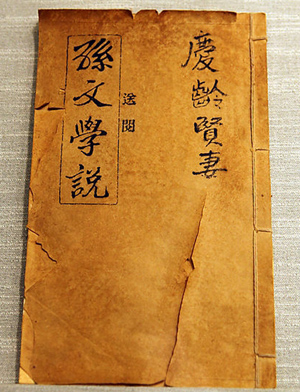 慶齡賢妻
送閱
孫文學説